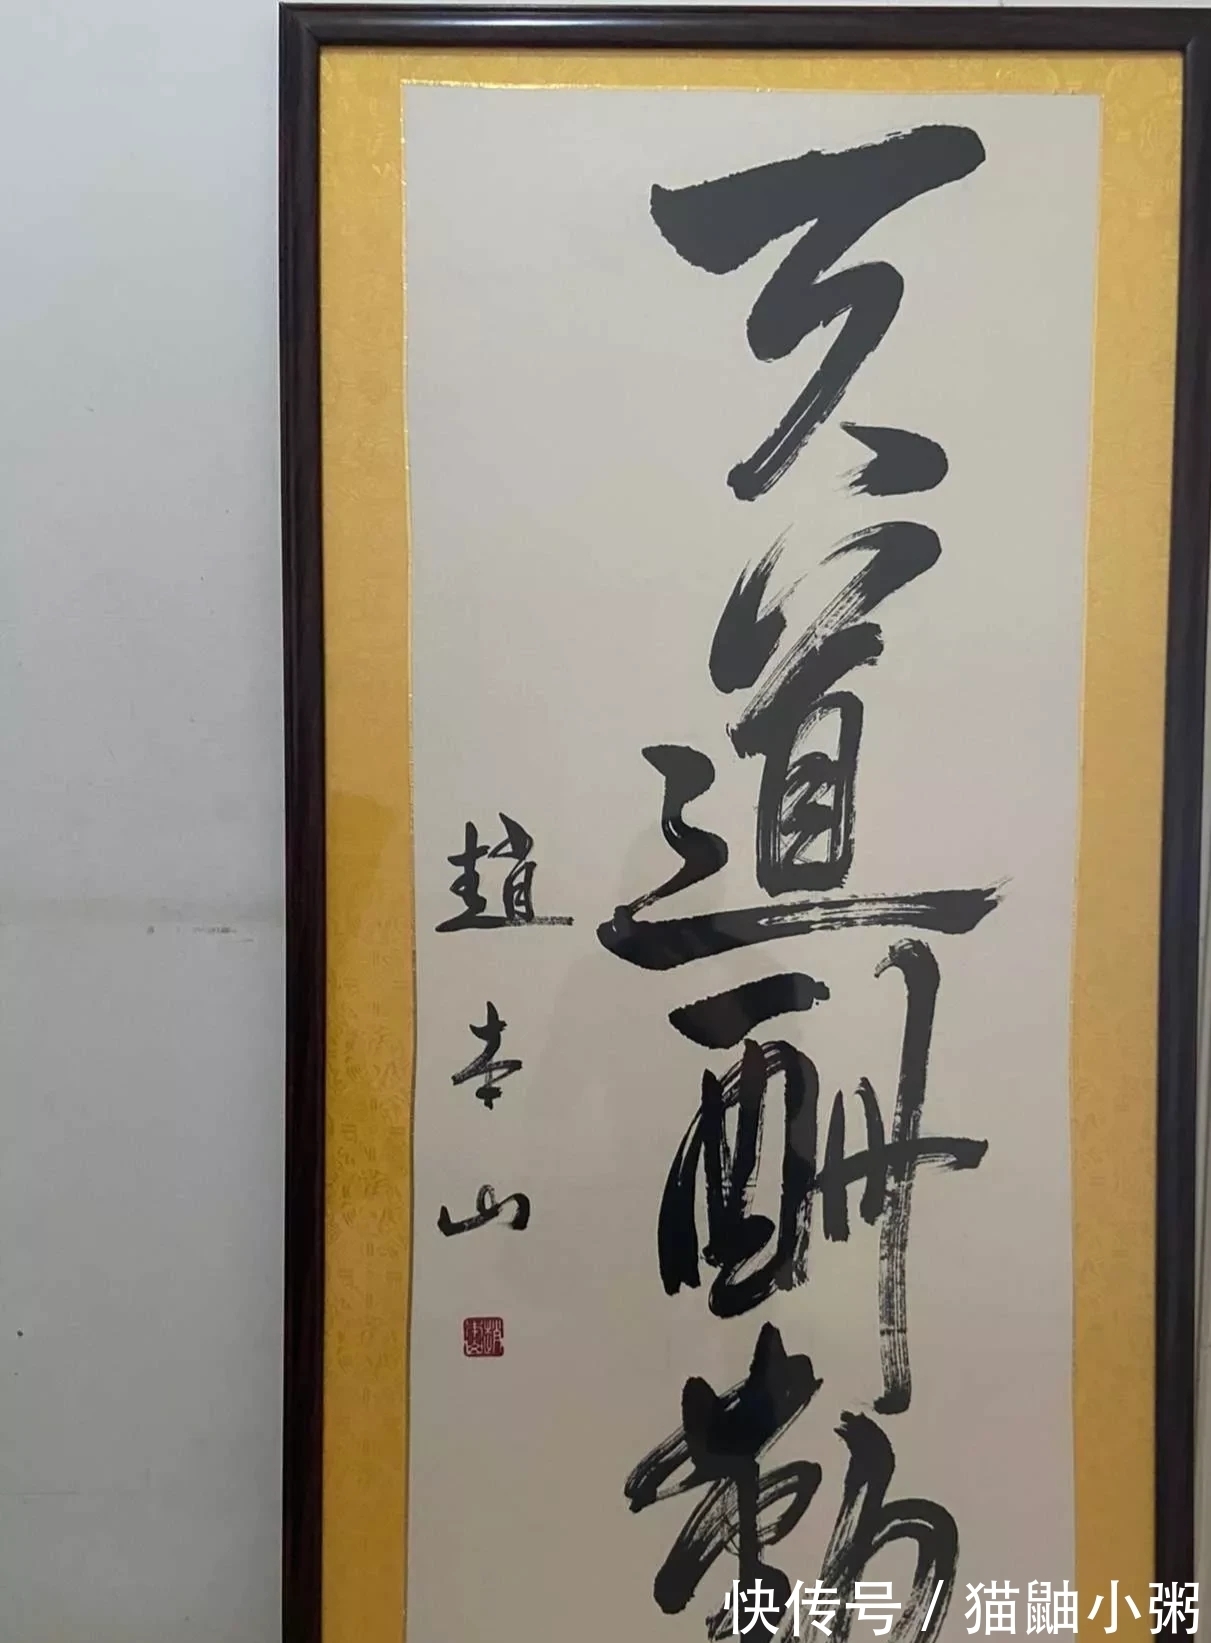 天道酬勤
趙本山
快传号 / 猫鼬小粥